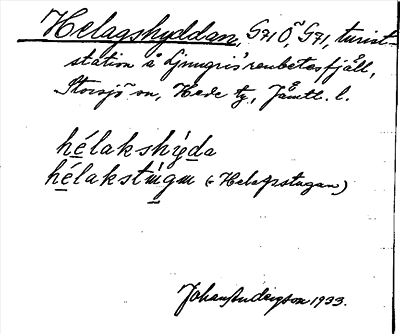 Helagshyddan, G71 Ö, G71, turist-
station å Ljungris renbetesfjäll,
Storsjö sn, Hede tg, Jämtl. l.
hélakshýda
hélakstúgu (= Helagsstugan)
Johan Andersson 1933.